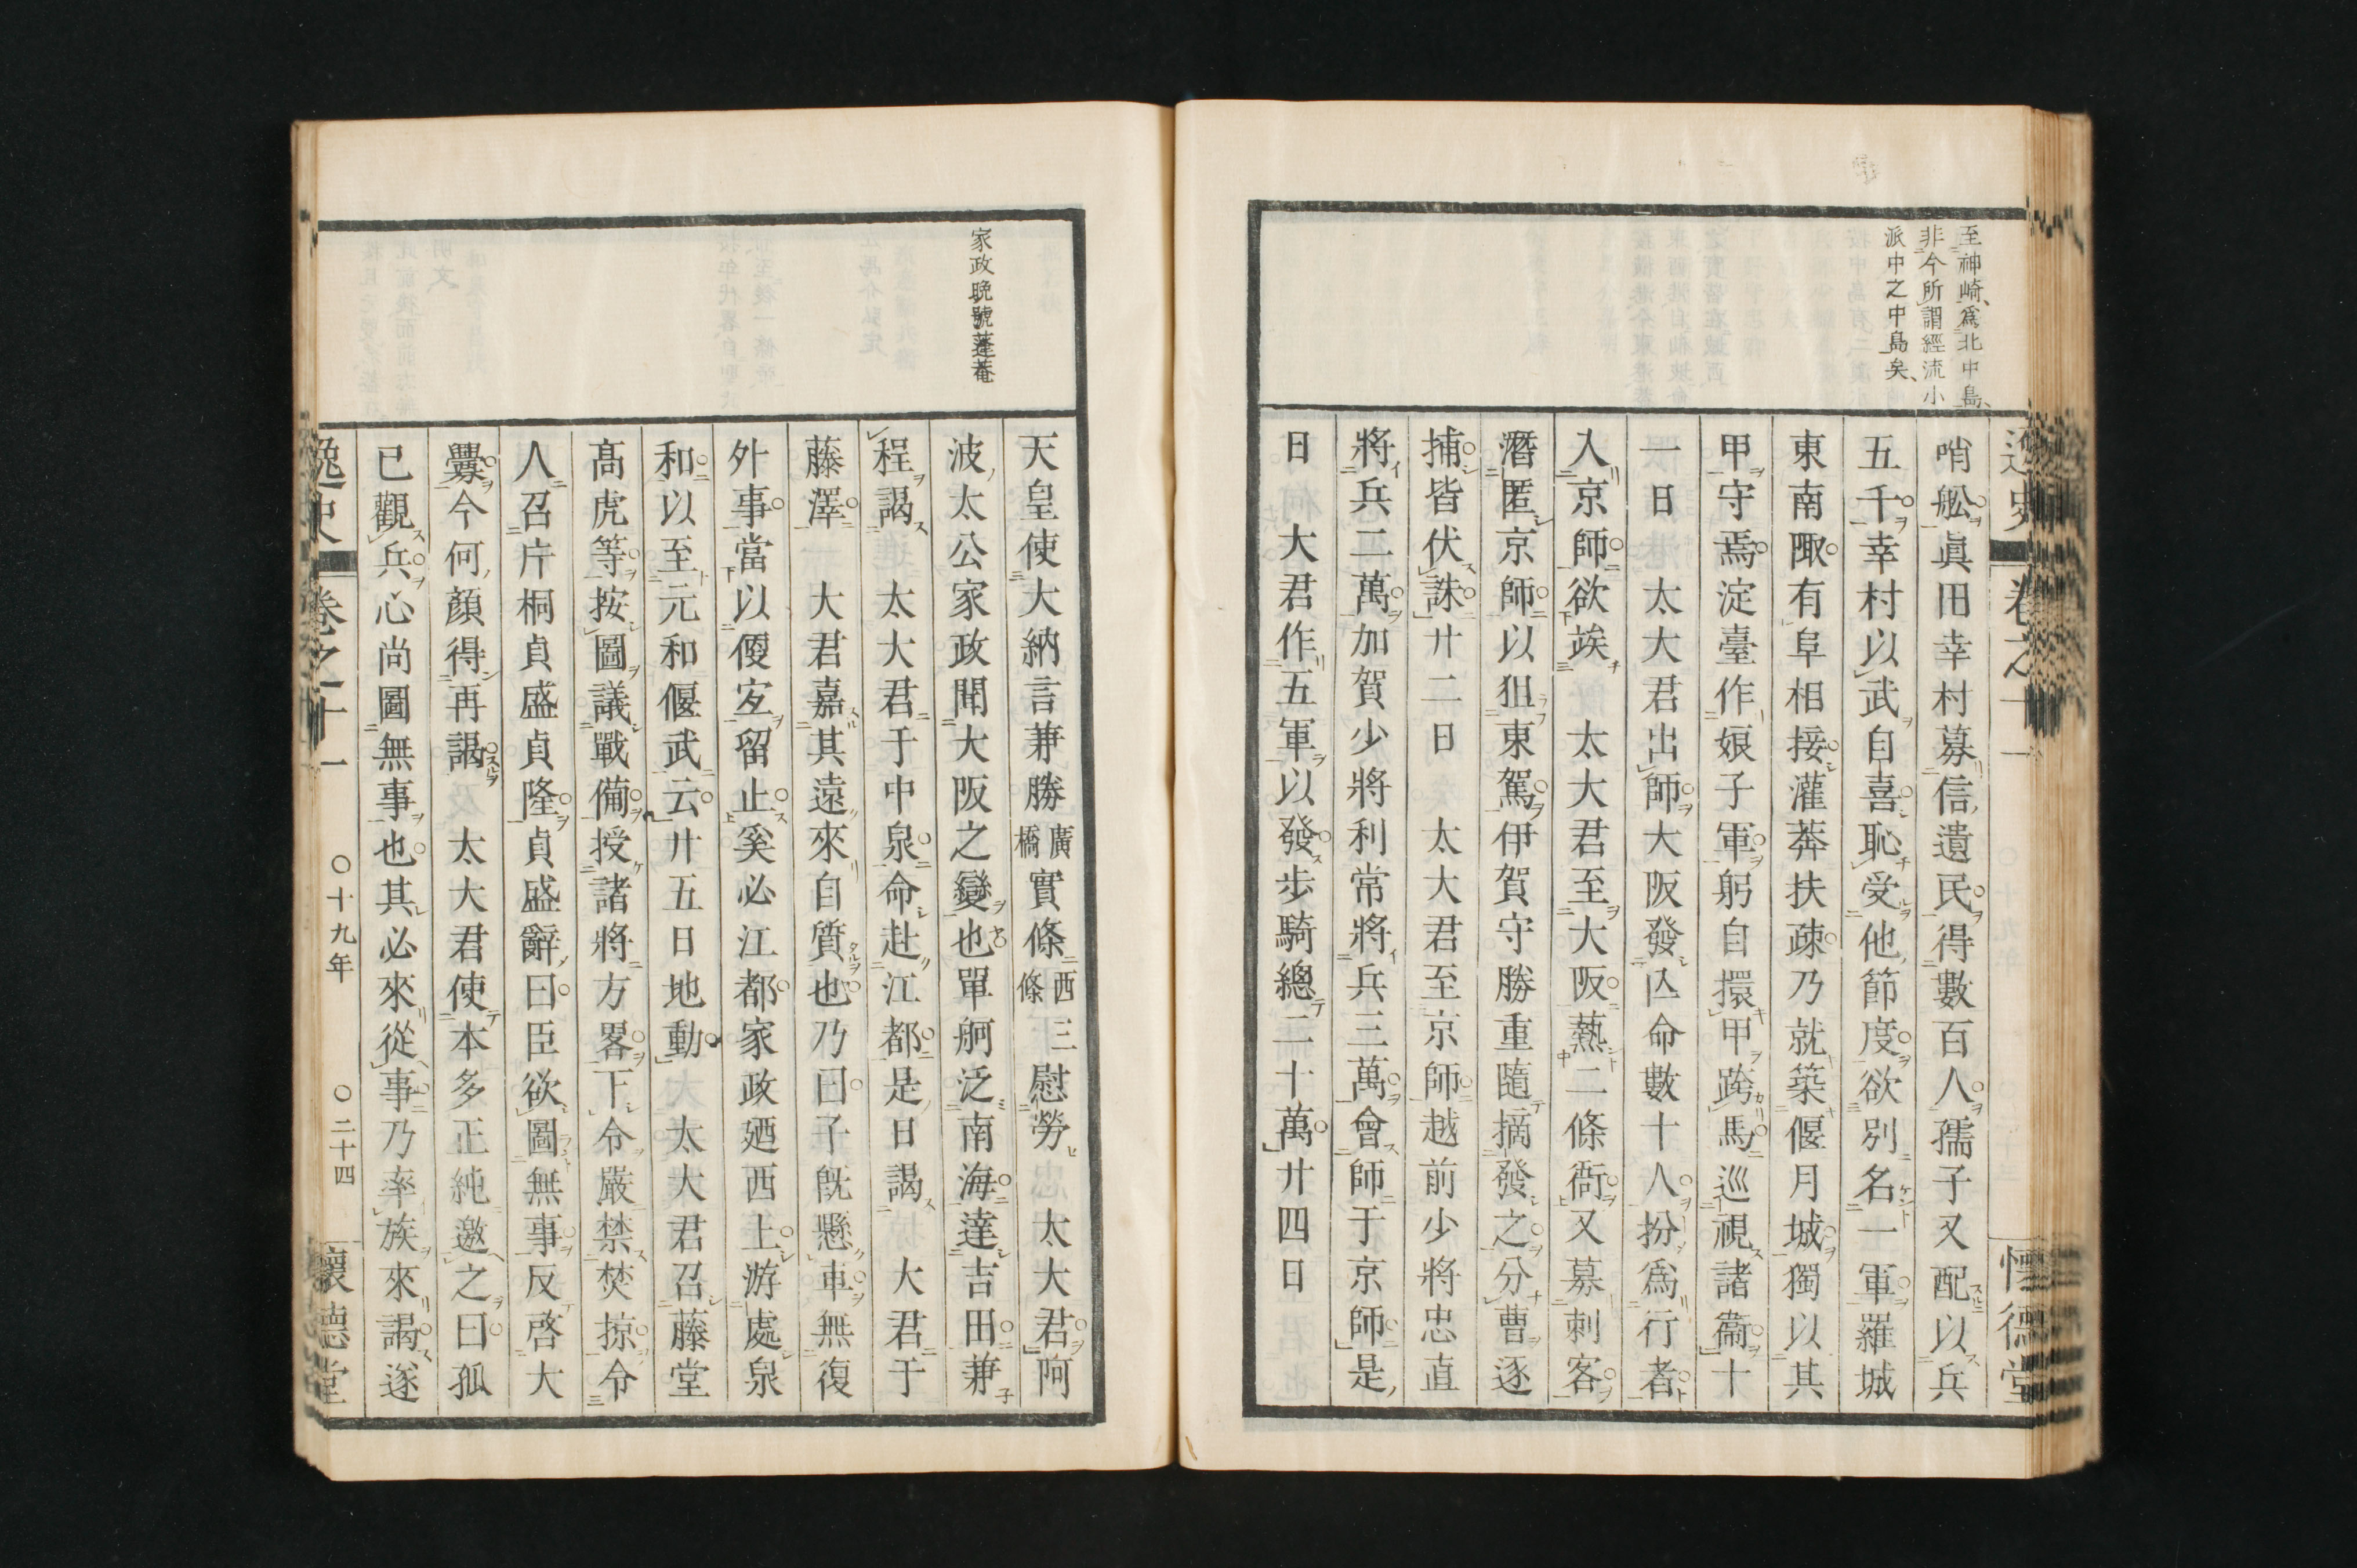 至神崎爲北中島
非今所謂經流小
派中之中島矣
逸史
卷之十一
懷德堂
哨舩眞田幸村募信遺民得數百人孺子又配以兵
五千幸村以武自喜恥受他節度欲別名一軍羅城
東南陬有阜相接灌莽扶疎乃就築偃月城獨以其
甲守焉淀臺作娘子軍躬自擐甲跨馬巡視諸衞十
一日 太大君出師大阪發亾命數十人扮爲行者
入京師欲竢 太大君至大阪熱二條衙又募刺客
潛匿京師以狙東駕伊賀守勝重隨摘發之分曹逐
捕皆伏誅廿二日 太大君至京師越前少將忠直
將兵二萬加賀少將利常將兵三萬會師于京師是
日 大君作五軍以發步騎總二十萬廿四日
家政晚號蓬菴
天皇使大納言兼勝廣橋實條西三條慰勞 太大君阿
波太公家政聞大阪之變也單舸泛南海達吉田兼
程謁 太大君于中泉命赴江都是日謁 大君于
藤澤 大君嘉其遠來自質也乃曰子旣懸車無復
外事當以便宜留止奚必江都家政廼西上游處泉
和以至元和偃武云廿五日地動 太大君召藤堂
高虎等按圖議戰備授諸將方畧下令嚴禁焚掠令
人召片桐貞盛貞隆貞盛辭曰臣欲圖無事反啓大
釁今何顏得再謁 太大君使本多正純邀之曰孤
已觀兵心尚圖無事也其必來從事乃率族來謁遂
逸史
卷之十一
〇十九年
〇二十四
懷德堂